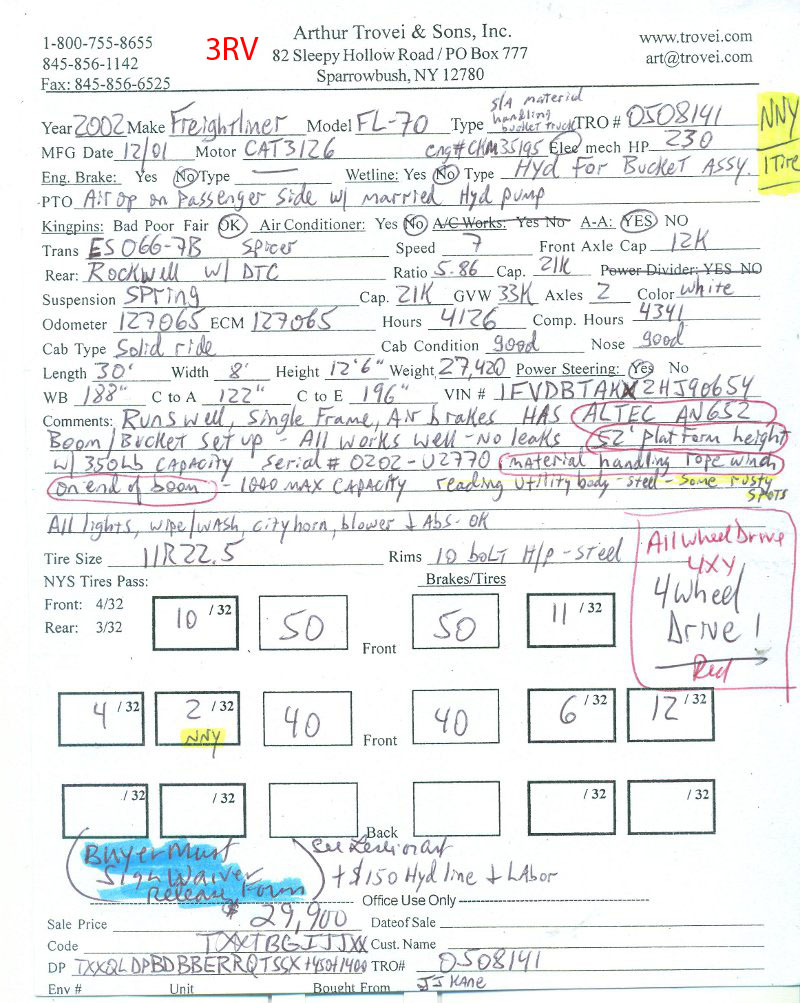 Arthur Trovei & Sons, Inc.
1-800-755-8655 3RV 82 Sleepy Hollow Road / PO Box 777 www.trovei.com
845-856-1142 art@trovei.com
Fax: 845-856-6525 Sparrowbush, NY 12780
Year 2002 Make Freightliner Model FL-70 Type S/A material handling bucket truck TRO # 0508141 NNY
MFG Date 12/01 Motor CAT 3126 eng# CKM35195 Elec mech HP 230 1 Tire
Eng. Brake: Yes No Type — Wetline: Yes No Type Hyd For Bucket Assy.
PTO Air op on Passenger Side w/ married Hyd pump
Kingpins: Bad Poor Fair OK Air Conditioner: Yes No A/C Works: Yes No A-A: YES NO
Trans ES066-7B Spicer Speed 7 Front Axle Cap 12K
Rear: Rockwell w/ DTC Ratio 5.86 Cap. 21K Power Divider: YES NO
Suspension Spring Cap. 21K GVW 33K Axles 2 Color white
Odometer 127065 ECM 127065 Hours 4126 Comp. Hours 4341
Cab Type Solid ride Cab Condition good Nose good
Length 30' Width 8' Height 12'6" Weight 27,420 Power Steering: Yes No
WB 188" C to A 122" C to E 196" VIN # 1FVDBTAK 2HJ90654
Comments: Runs well, Single Frame, Air brakes HAS ALTEC AN652
Boom/Bucket set up - All works well - No leaks 52' platform height
w/ 350Lb CAPACITY Serial # 0202-U2770 material handling rope winch
on end of boom - 1000 MAX CAPACITY reading utility body - steel - Some rusty
SPOTS
All lights, wipe/wash, city horn, blower + Abs - OK
Tire Size 11R22.5 Rims 10 bolt H/p - steel
All wheel Drive
4x4
4 wheel
Drive !
Red
NYS Tires Pass: Brakes/Tires
Front: 4/32
Rear: 3/32
10 /32 50 Front 50 11 /32
4 /32 2 /32 NNY 40 Front 40 6 /32 12 /32
/32 /32 Back /32 /32
Buyer Must
Sign Waiver
Release Form
See Leslie or Art
+ $150 Hyd line + LAbor
Office Use Only
Sale Price $ 29,900 Date of Sale
Code TXXTBGIJJXX Cust. Name
DP TXXQLDPBDBBERRQTSSX +450+1400 TRO# 0508141
Env # Unit Bought From JJ KANE